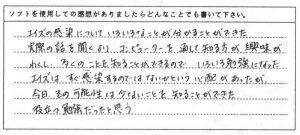 ソフトを使用しての感想がありましたらどんなことでも書いて下さい。
エイズの感染についていろいろなことが分かることができた
実際の話を聞くより、コンピューターを通して知る方が興味が
わくし、多くのことを知ることができるので、いろいろ勉強になった
エイズはすぐ感染するのではないかという心配があったが、
今日、その可能性は少ないことを知ることができた
役立つ勉強だったと思う